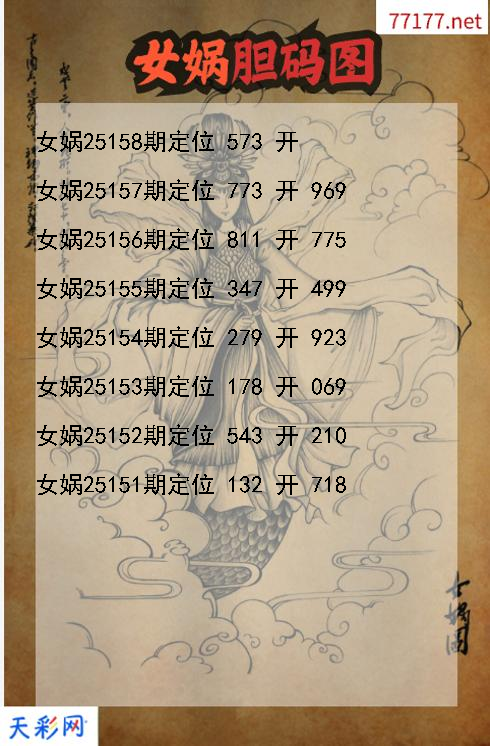 77177.net
女娲胆码图
女娲25158期定位 573 开
女娲25157期定位 773 开 969
女娲25156期定位 811 开 775
女娲25155期定位 347 开 499
女娲25154期定位 279 开 923
女娲25153期定位 178 开 069
女娲25152期定位 543 开 210
女娲25151期定位 132 开 718
女媧圖
天彩网